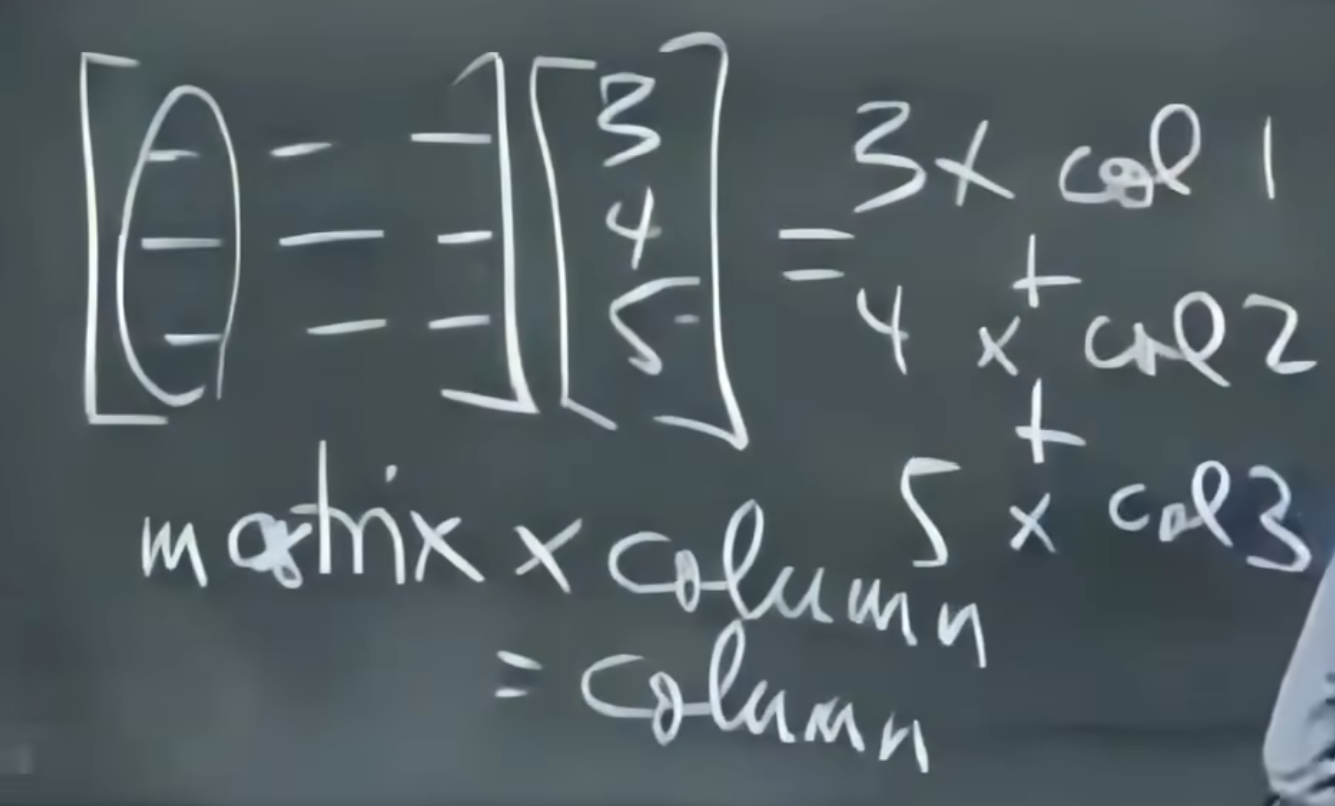 [ - - - ] [ 3 ] = 3 x col 1
[ - - - ] [ 4 ] +
4 x col 2
[ - - - ] [ 5 ] +
5 x col 3
matrix x column
= column